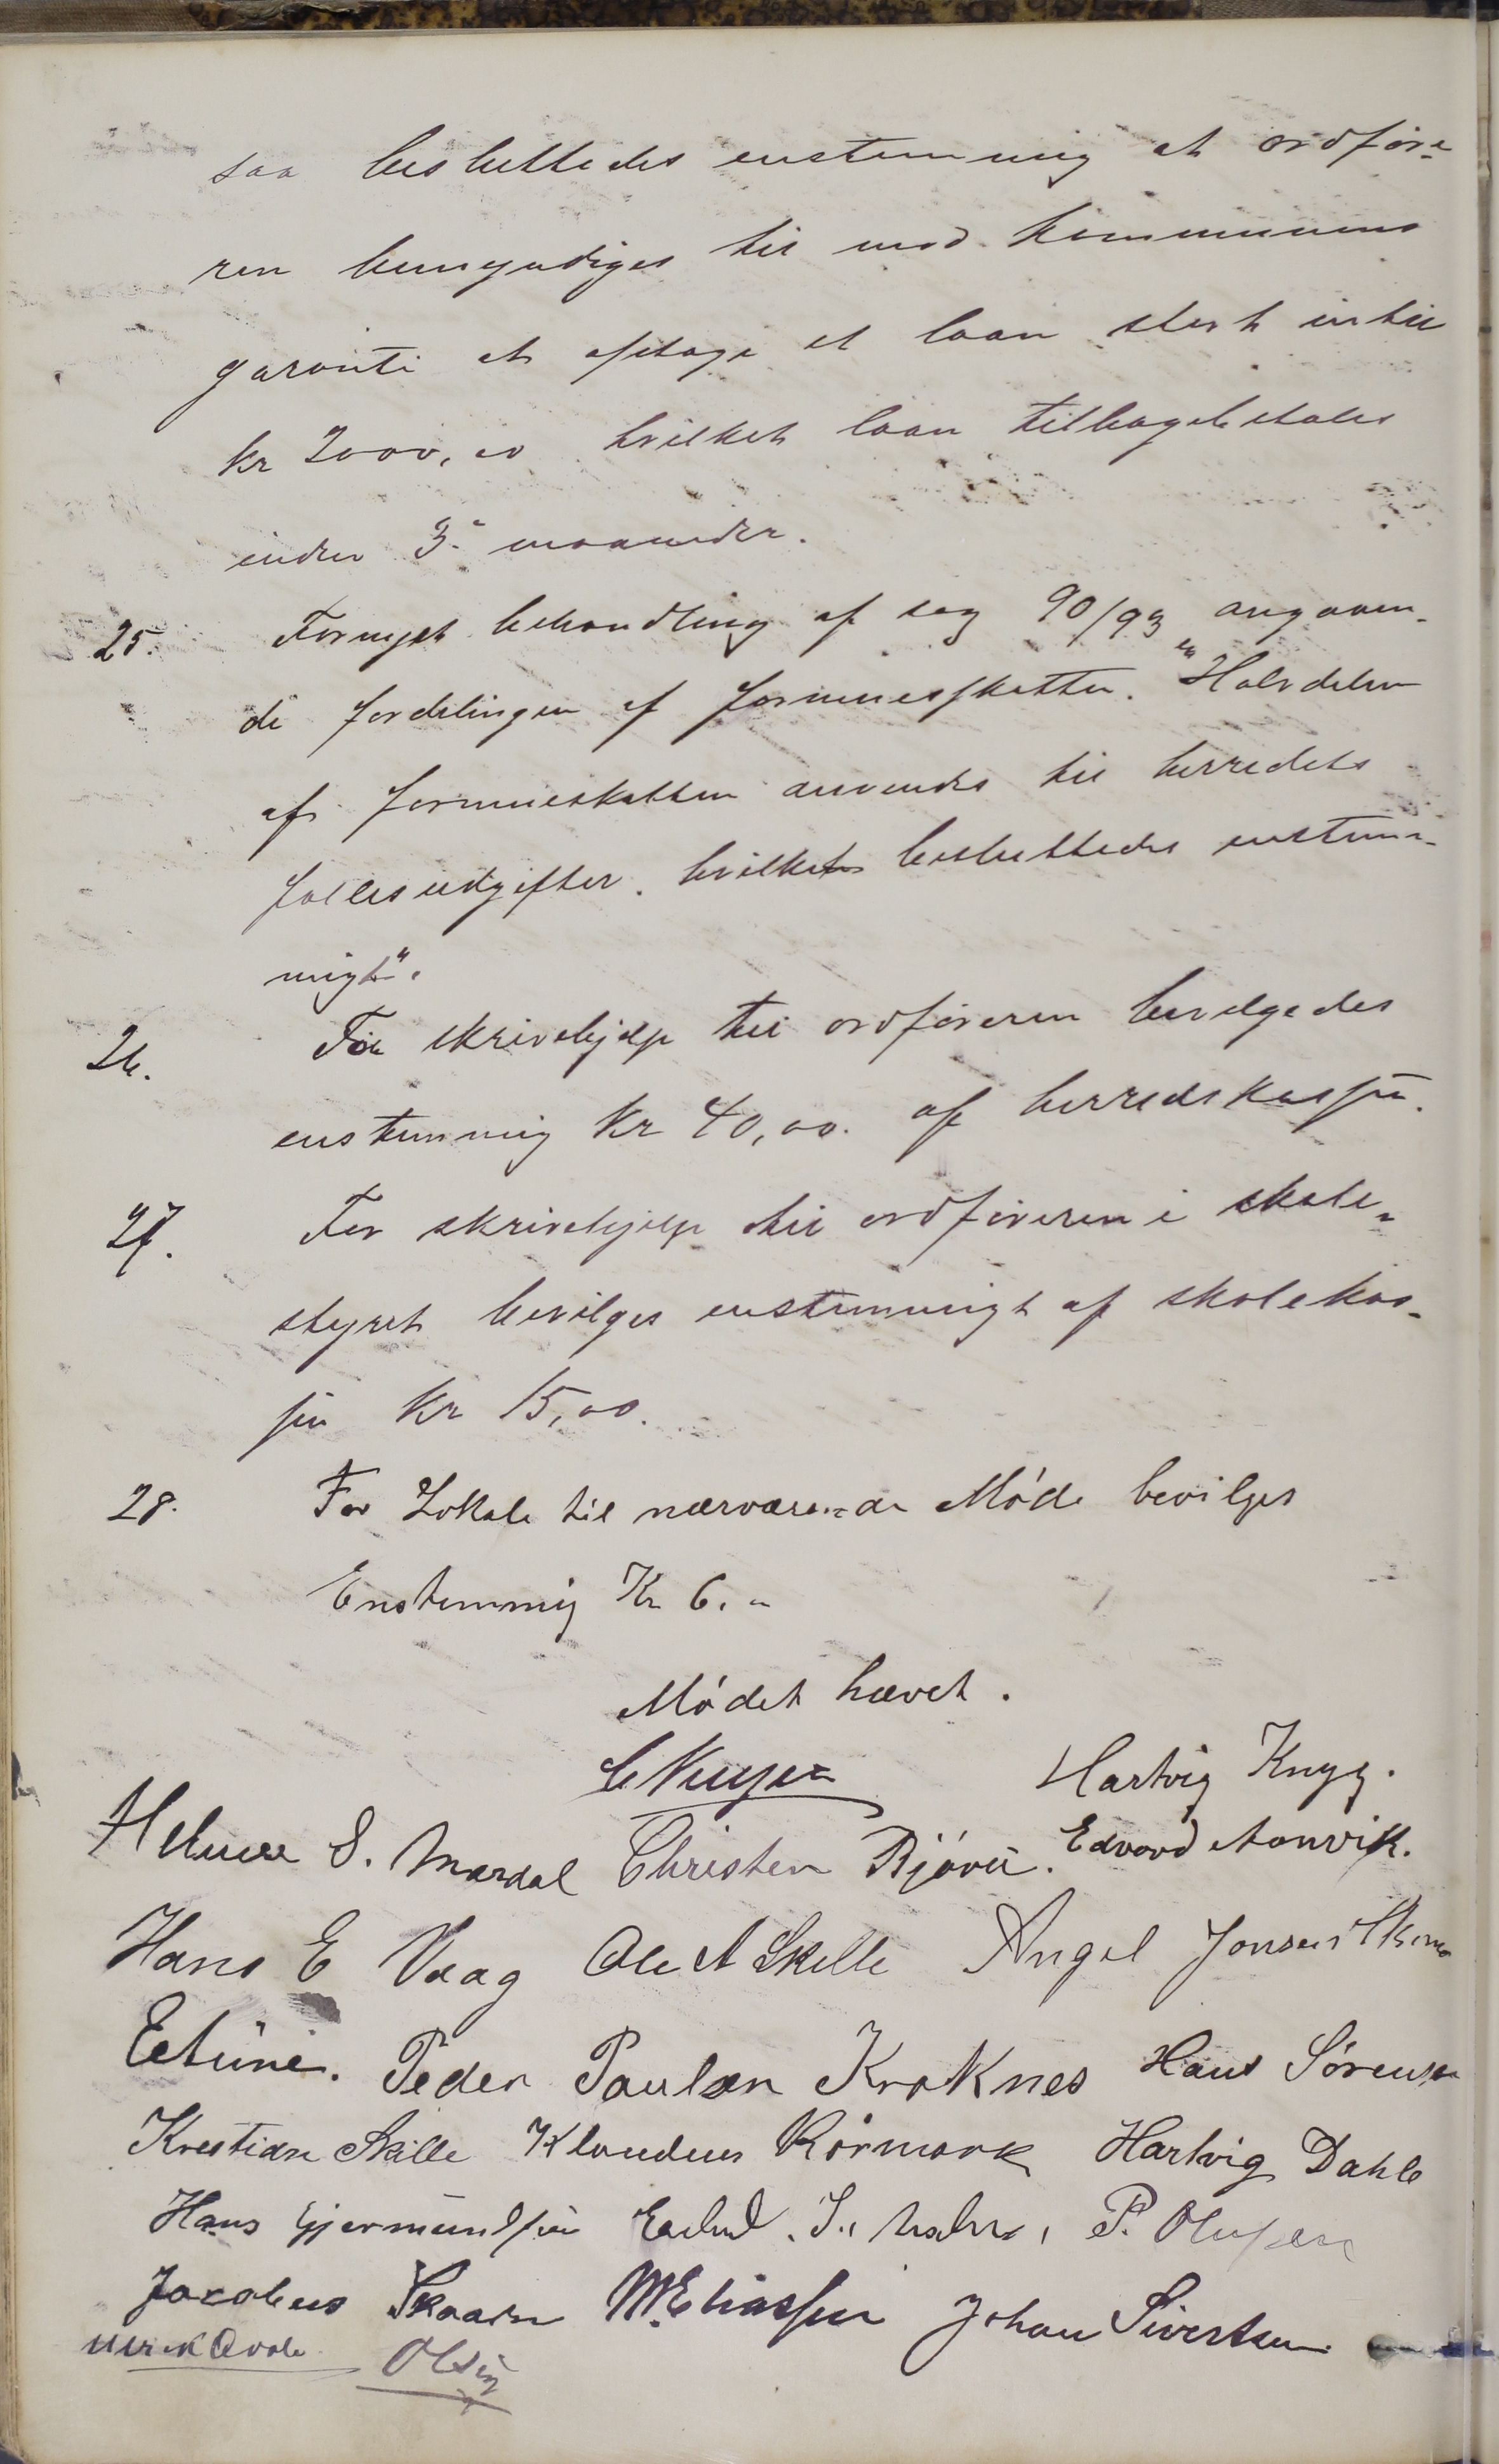 saa besluttedes enstemmig at ordføre-
ren bemyndiges til mod kommunens
garanti at optage et laan stort indtil
kr 2000,00 hvilket laan tilbagebetales
inden 3 maaneder.
25. Fornyet behandling af sag 90/93 angaaen-
de fordelingen af formuesskatten. "Halvdelen
af formueskatten anvendes til herredets
fællesudgifter. hvilket besluttedes enstem-
migt".
26. For skrivehjelp til ordføreren bevilgedes
enstemmig kr 40,00. af herredskassen.
27. For skrivehjelp til ordføreren i skole-
styret bevilges enstemmigt af skolekas-
sen kr 15,00.
28. For Lokale til nærværende Møde bevilges
Enstemmig Kr 6. "
Mødet hævet.
Hartvig Knyg.
S. Mardal Christen Edvard Aanvik.
Hans E Vaag Ole A Skille Angel Jonsen
Peder Paulsen Kroknes Hans Sørensen
Krestian Skille Klaudius Rørmark Hartvig Dahle
Hans Gjermundsen P. Olufsen
Jacobus Skaarn M. Eliassen Johan Sivertsen
Olsen